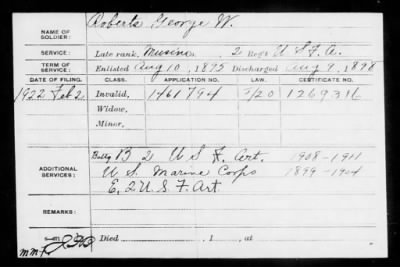 NAME OF SOLDIER: Roberts George W.
SERVICE: Late rank, Musin, 2 Reg't U S F A.
TERM OF SERVICE: Enlisted Aug 10, 1895 Discharged Aug 9, 1898
DATE OF FILING. CLASS. APPLICATION NO. LAW. CERTIFICATE NO.
1922 Feb 2 Invalid, 1461794 1269316
Widow,
Minor,
ADDITIONAL SERVICES: Batty B 2 U S F Art. 1908-1911
U S. Marine Corps 1899-1904
E. 2 U. S. F. Art.
REMARKS:
Died , 1 , at